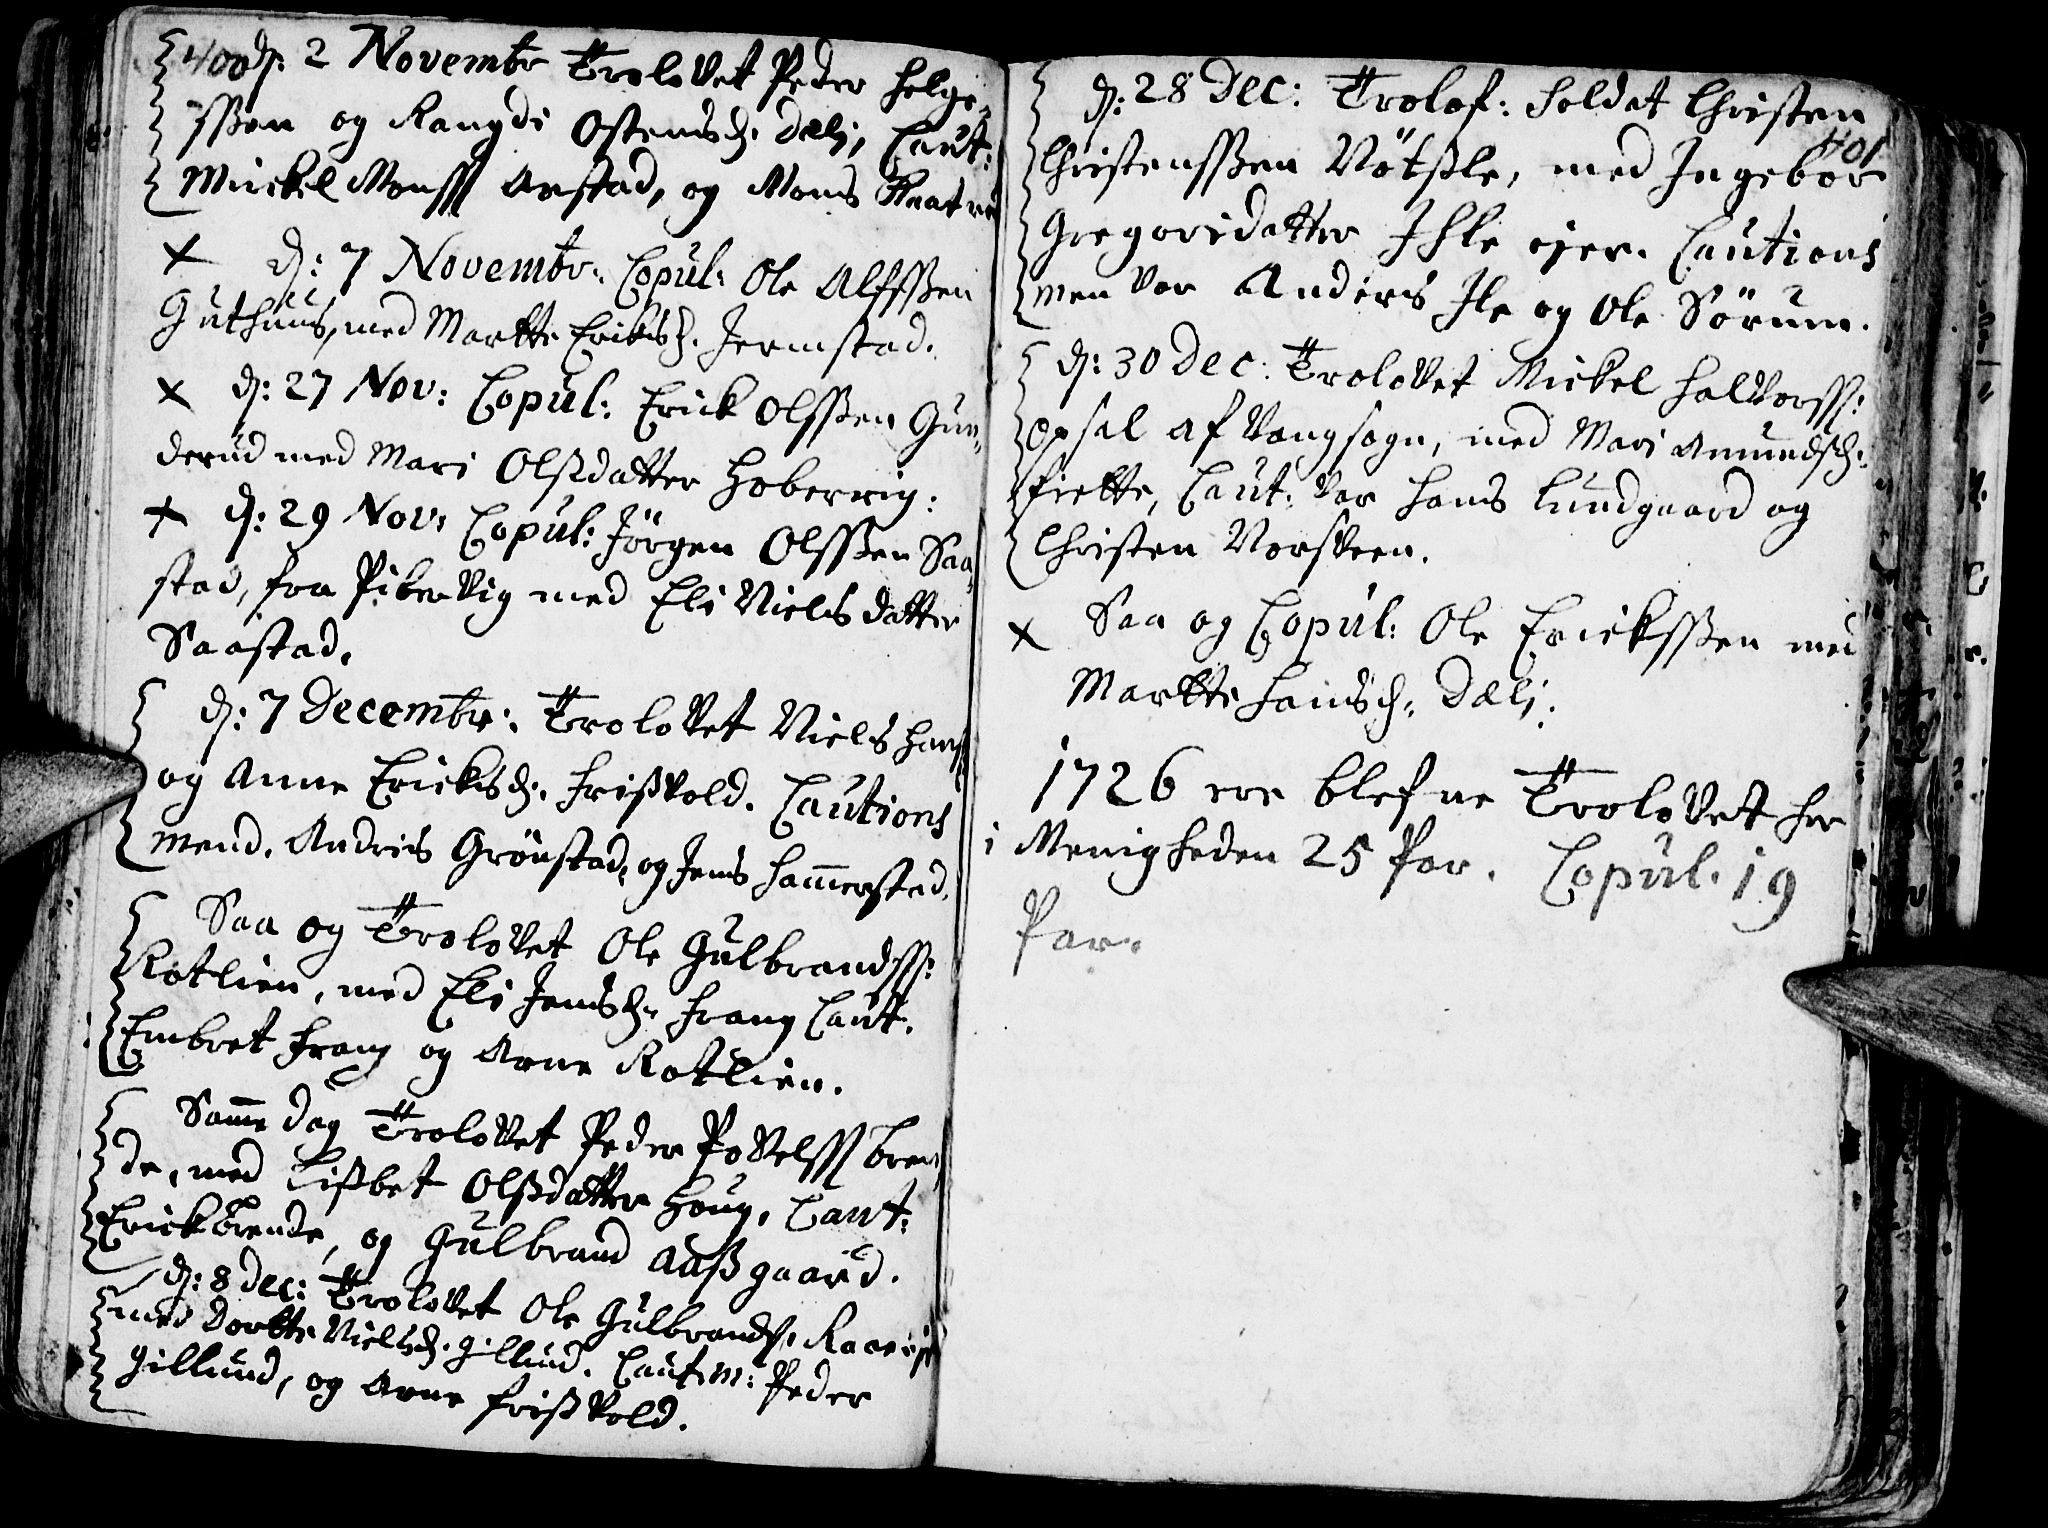 400
d: 2 Novembr Trolovet Peder Helge-
ssen og Rangdi Ostensd. Dæli, Caut:
Mickel Monss Arstad, og Mons
d: 7 Novembr. Copul: Ole Alfssen
Guthuus, med Martte Eriksd. Jermstad.
d: 27 Nov: Copul: Erick Olssen Gun-
derud med Mari Olsdatter Hoberrig:
d: 29 Nov: Copul: Jörgen Olssen Saa-
stad, fra Pibervig med Eli Nielsdatter
Saastad.
d: 7 Decembr: Trolovet Niels Hanss
og Anne Ericksd. Frissvold. Cautions
mend. Andris Grönstad, og Jens Hammerstad.
Saa og Trolovet Ole Gulbrandss:
Rotlien, med Eli Jensd. Frang Caut.
Embret Frang og Arne Rotlien.
Samme dag Trolovet Peder Povelss Bren-
de, med Lissbet Olssdatter Houg, Caut:
Erick Brende, og Gulbrand Aassgaard.
d: 8 Dec: Trolovet Ole Gulbrands.
med Dortte Nielsd. Gillund. Cautm: Peder
Gillund, og Arne Frissvold.
401
d: 28 Dec: Trolof: Soldat Christen
Christenssen Nötssle, med Ingebor
Gregorisdatter Ihle ejer. Cautions
men var Anders Ile og Ole Sörum.
d: 30 Dec. Trolovet Mickel Halvorss:
Opsal af Vangsogn, med Mari Amundsd.
Fiette, Caut: var Hans Lundgaard og
Christen Norsveen.
Saa og Copul: Ole Erickssen med
Martte Hansd. Dæli.
1726 ere blefne Trolovet her
i Menigheden 25 Par. Copul. 19
Par.